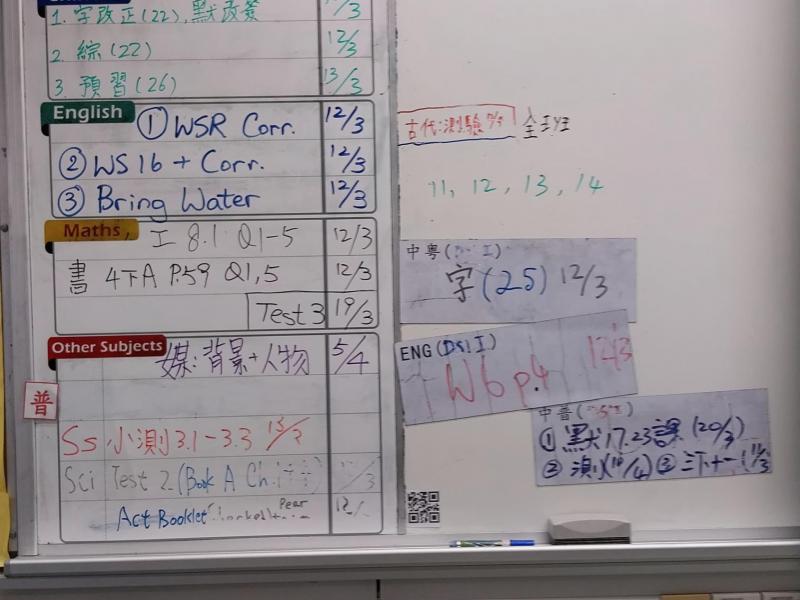 1. 字改正(22), 默改簽 /3
2. 綜(22) 12/3
3. 預習(26) 13/3
English ① WSR Corr. 12/3
② WS 16 + Corr. 12/3
③ Bring Water 12/3
Maths, 工 8.1 Q1-5 12/3
書 4下A P.59 Q1,5 12/3
Test 3 19/3
Other Subjects
媒: 背景+人物 5/4
普
Ss 小測 3.1-3.3
Sci Test 2 (Book A Ch. /3
Act Booklet Pear
古代:測驗
全
11, 12, 13, 14
中粵( I)
字(25) 12/3
ENG (DS1 I)
W6 p.4 12/3
中普(
① 默 17.23課 (20/3)
② 測 ③